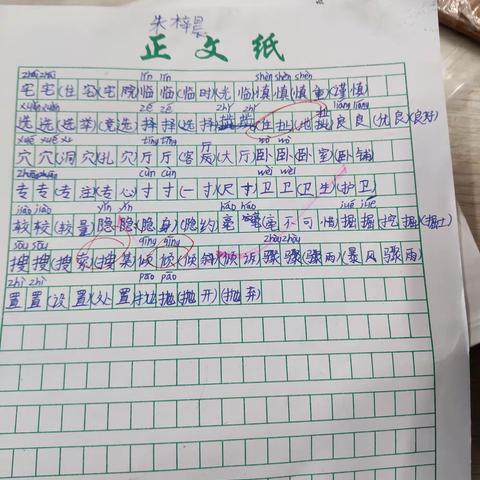 朱梓晨
正文纸
zhái zhái lín lín shèn shèn shèn
宅宅(住宅)(宅院)临临(临时)(光临)慎慎(慎重)(谨慎)
xuǎn xuǎn zé zé zhǐ zhǐ liáng liáng
选选(选举)(竞选)择择(选择)址址(住址)(地址)良良(优良)(良好)
xué xué xué tīng tīng wò wò
穴穴(洞穴)(扎穴)厅厅(客厅)(大厅)卧卧(卧室)(卧铺)
zhuān zhuān cùn cùn wèi wèi
专专(专注)(专心)寸寸(一寸)(尺寸)卫卫(卫生)(护卫)
jiào jiào yǐn yǐn háo háo jué jué
较较(较量)隐隐(隐身)(隐约)毫毫(毫不可惜)掘掘(挖掘)(掘土)
sōu sōu qīng qīng zhòu zhòu
搜搜(搜家)(搜集)倾倾(倾斜)(倾诉)骤骤(骤雨)(暴风骤雨)
zhì zhì pāo pāo
置置(设置)(处置)抛抛(抛开)(抛弃)